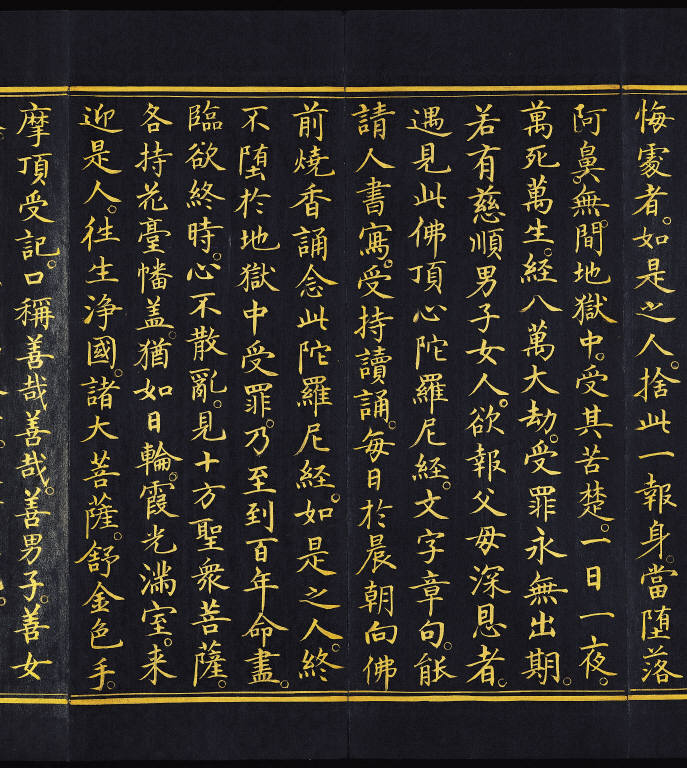 悔處者。如是之人。捨此一報身。當堕落
阿鼻。無間地獄中。受其苦楚。一日一夜。
萬死萬生。經八萬大劫。受罪永無出期。
若有慈順男子女人。欲報父母深恩者。
遇見此佛頂心陀羅尼經。文字章句。能
請人書寫。受持讀誦。每日於晨朝向佛
前燒香誦念此陀羅尼經。如是之人。終
不堕於地獄中受罪。乃至到百年命盡。
臨欲終時。心不散亂。見十方聖衆菩薩。
各持花臺幡盖。猶如日輪。霞光滿室。来
迎是人。往生浄國。諸大菩薩。舒金色手。
摩頂受記。口稱善哉善哉。善男子。善女